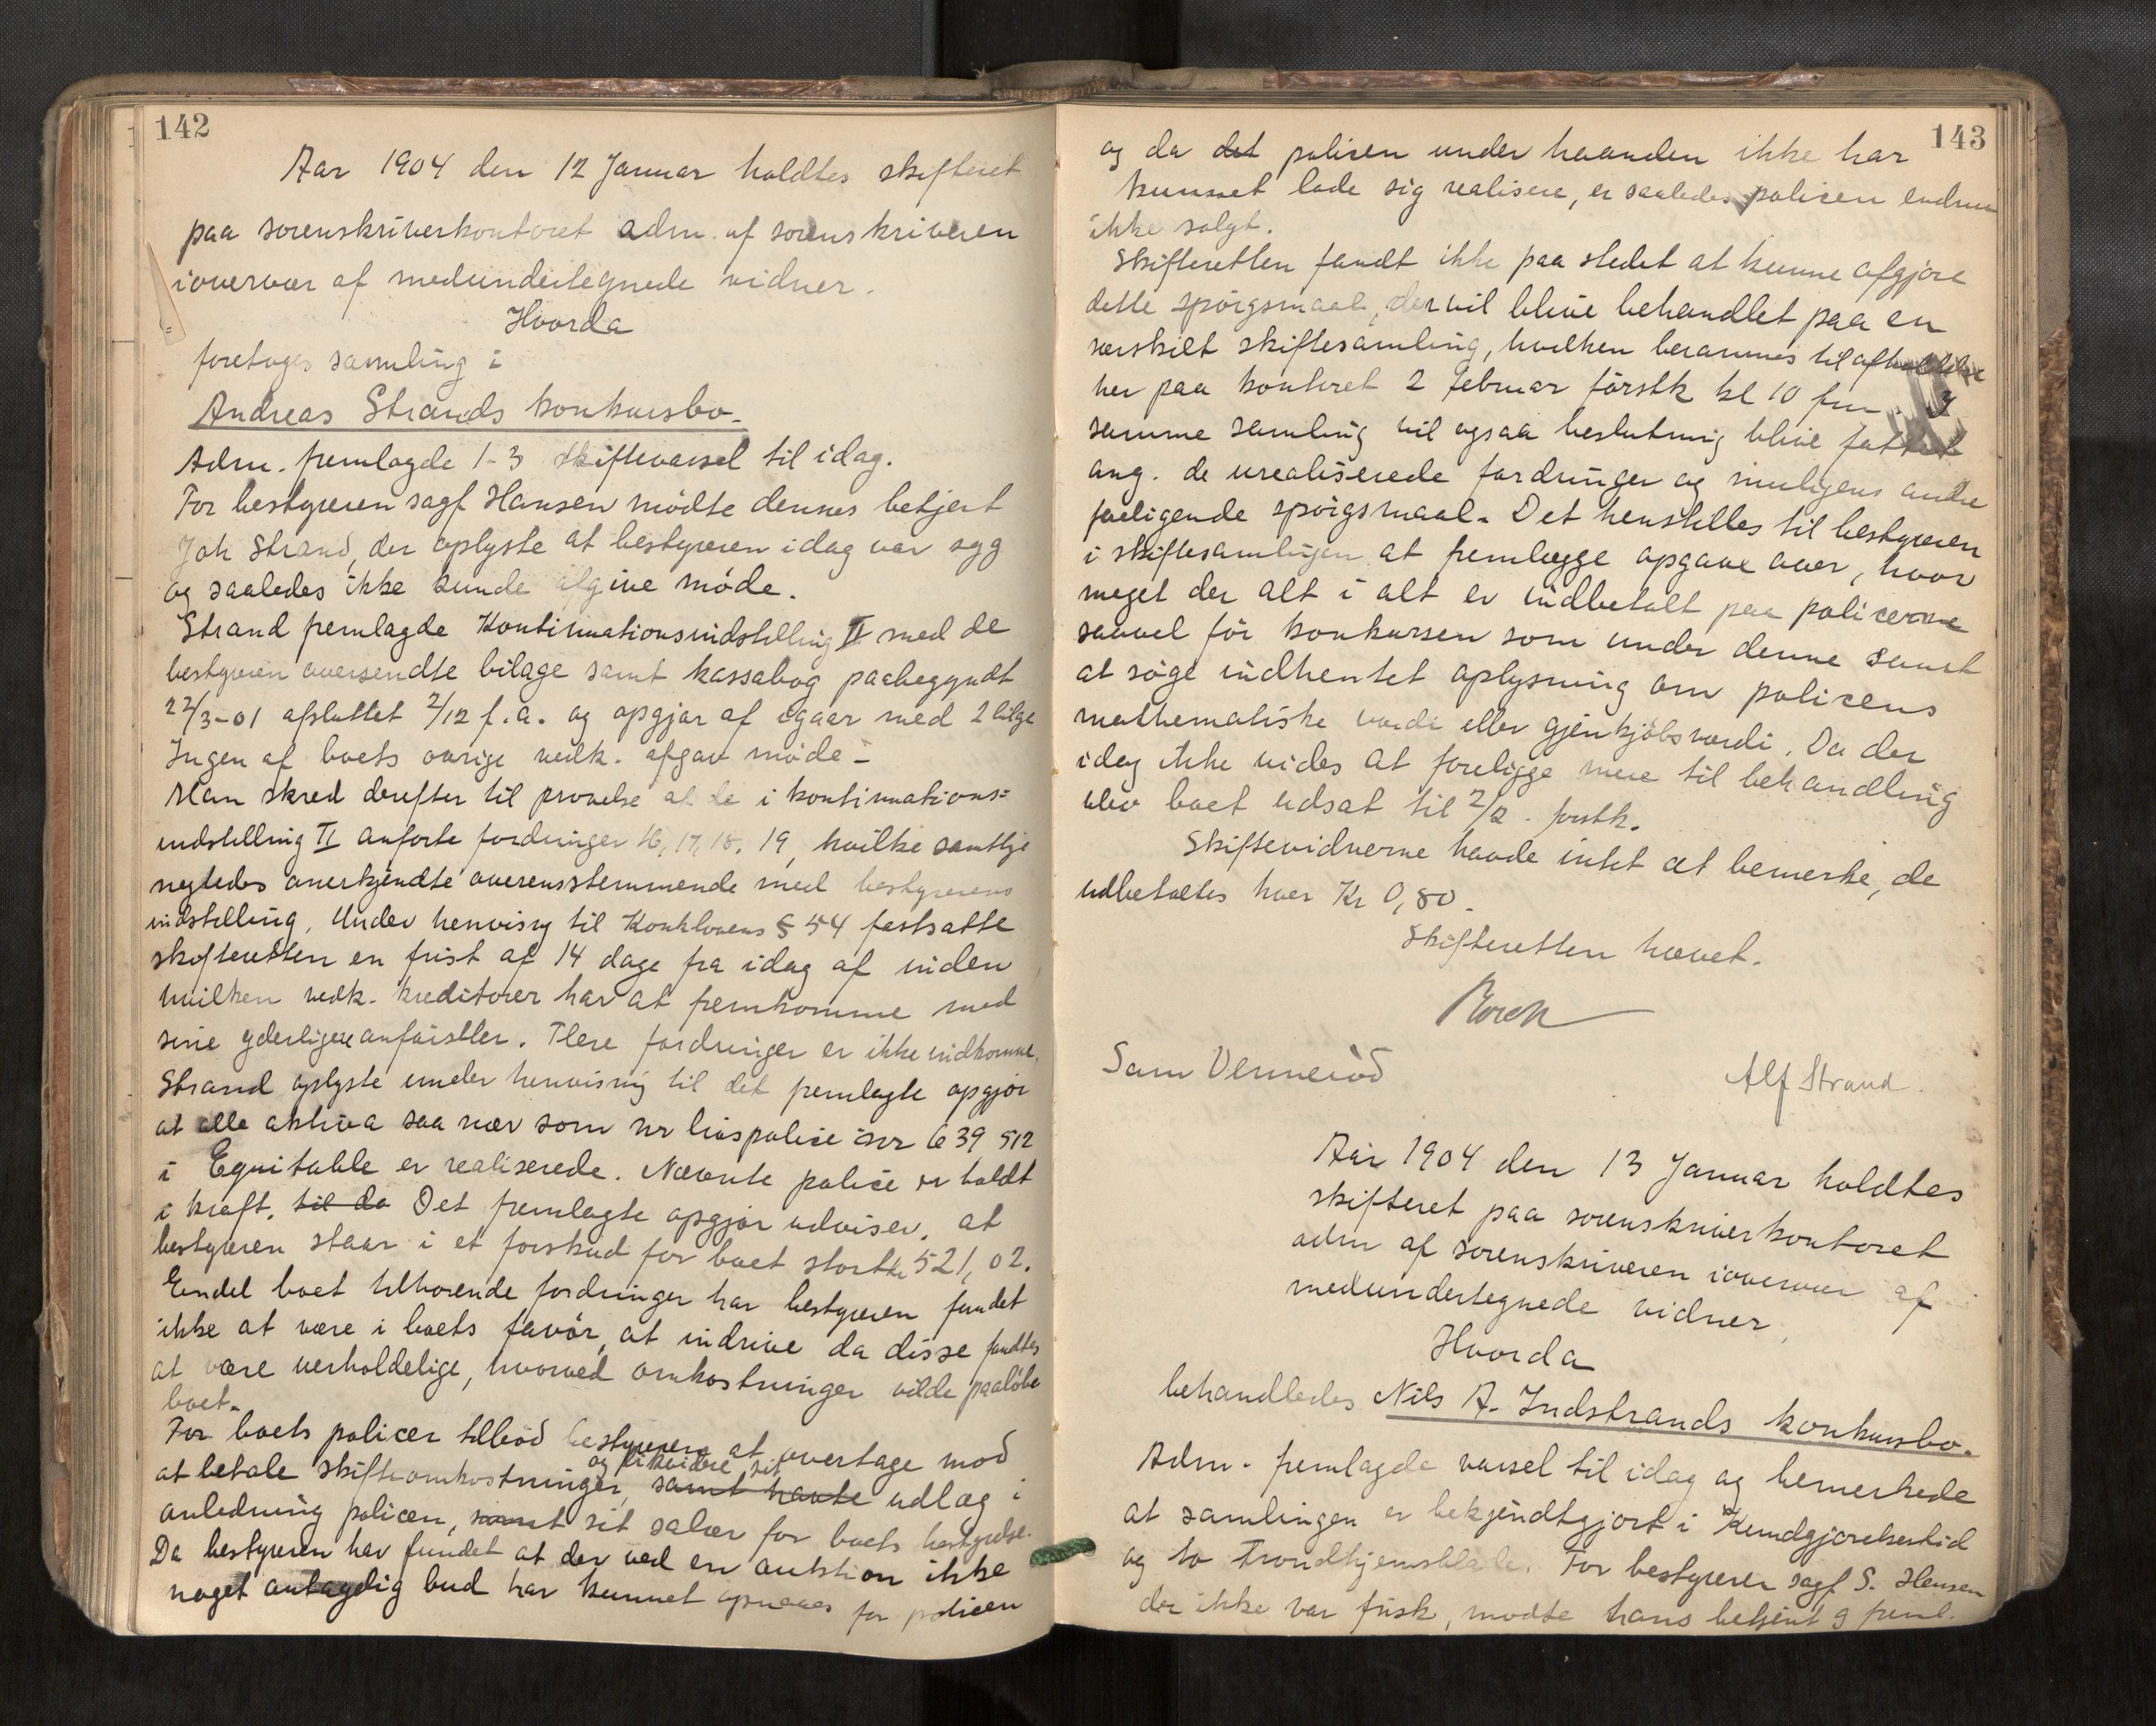 142
Aar 1904 den 12 Januar holdtes skifteret
paa sorenskriverkontoret adm. af sorenskriveren
i overvær af medundertegnede vidner.
Hvorda
foretoges samling i
Andreas Strands konkursbo.
Adm. fremlagde 1-3 skiftevarsel til idag.
For bestyreren sagf Hansen mødte dennes betjent
Joh Strand, der oplyste at bestyreren idag var syg
og saaledes ikke kunde afgive møde.
Strand fremlagde Kontinuationsindstilling II med de
bestyreren oversendte bilage samt kassabog paabegyndt
22/3-01 afsluttet 2/12 f.a. og opgjør af igaar med 2 bilge
Ingen af boets øvrige vedk. afgav møde -
Man skred derefter til prøvelse af de i kontinuations=
indstilling II anførte fordringer 16, 17, 18, 19, hvilke samtlige
negtedes anerkjendte overensstemmende med bestyrerens
indstilling. Under henvisng til Konklovens § 54 fastsatte
skifteretten en frist af 14 dage fra idag af inden
hvilken vedk. kreditorer har at fremkomme med
sine yderligere anførsler. Flere fordringer er ikke indkomne.
Strand oplyste under henvisnig til det fremlagte opgjør
at alle aktiva saa nær som nr livspolice nr 639 512
i Equitable er realiserede. Nævnte police er holdt
i kraft. til da Det fremlagte opgjør udviser, at
bestyreren staar i et forskud for boet stort kr 521,02.
Endel boet tilhørende fordringer har bestyreren fundet
ikke at være i boets favør, at indrive da disse fandtes
at være uerholdelige, hvorved omkostninger vilde paaløbe
boet.
For boets policer tilbød bestyreren at overtage mod
og likvidere sit
at betale skifteomkostninger, samt havte udlæg i
anledning policen, samt sit salær for boets bestyrelse.
Da bestyreren har fundet at der ved en auktion ikke
noget antagelig bud har kunnet opnaaes for policen
143
og da det policen under haanden ikke har
kunnet lade sig realisere, er saaledes policen endnu
ikke solgt.
Skifteretten fandt ikke paa stedet at kunne afgjøre
dette spørgsmaal, der vil blive behandlet paa en
særskilt skiftesamling, hvilken berammes til afholdelse
her paa kontoret 2 februar førstk kl 10 fm. I
samme samling vil ogsaa beslutning blive fattet
ang. de urealiserede fordringer og muligens andre
foreligende spørgsmaal. Det henstilles til bestyreren
i skiftesamlingen at fremlægge opgave over, hvor
meget der alt i alt er indbetalt paa policerne
saavel før konkursen som under denne samt
at søge indhentet oplysning om policens
mathematiske værdi eller gjenkjøbsværdi. Da der
idag ikke vides at foreligge mere til behandling
blev boet udsat til 2/2. førstk.
Skiftevidnerne havde intet at bemerke, de
udbetaltes hver Kr 0,80.
Skifteretten hævet.
Sam Vennerød
Alf Strand.
Aar 1904 den 13 Januar holdtes
skifteret paa sorenskriverkontoret
adm af sorenskriveren i overvær af
medundertegnede vidner.
Hvorda
behandledes Nils A. Indstrands konkursbo.
Adm. fremlagde varsel til idag og bemerkede
at samlingen er bekjendtgjort i Kundgjørelsestid
og to Trondhjemsblade. For bestyreren sagf S. Hansen
der ikke var frisk, mødte hans betjent og freml.